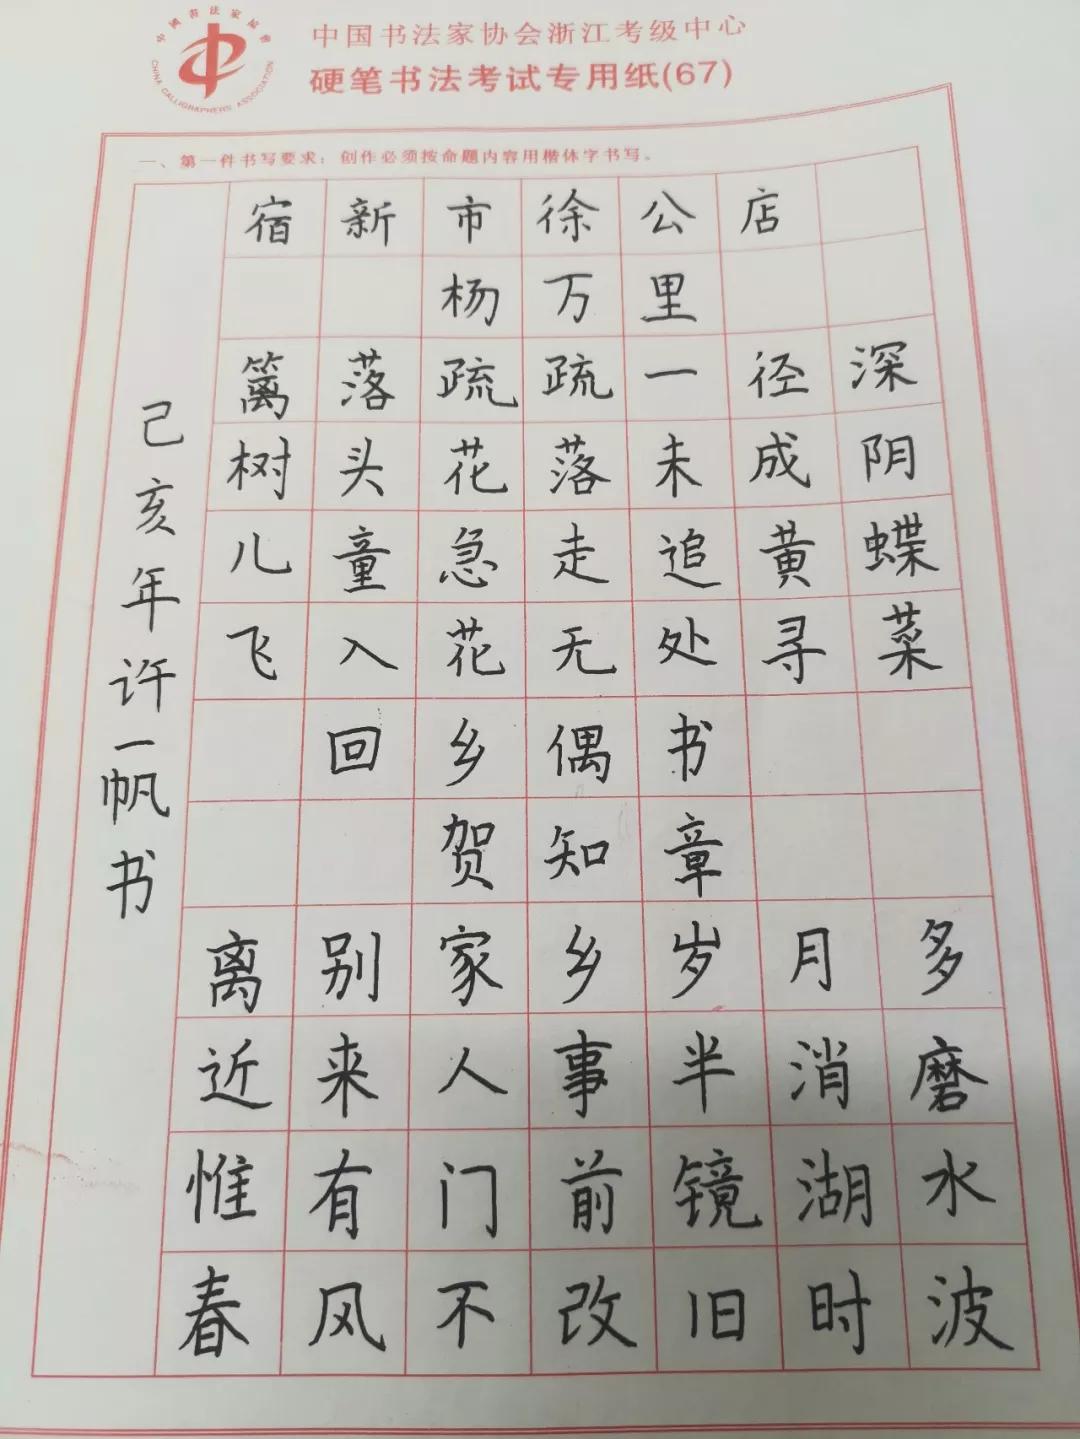 中国书法家协会
CHINA CALLIGRAPHERS ASSOCIATION
中国书法家协会浙江考级中心
硬笔书法考试专用纸(67)
一、第一件书写要求：创作必须按命题内容用楷体字书写。
宿新市徐公店
杨万里
篱落疏疏一径深
树头花落未成阴
儿童急走追黄蝶
飞入花无处寻菜
回乡偶书
贺知章
离别家乡岁月多
近来人事半消磨
惟有门前镜湖水
春风不改旧时波
己亥年许一帆书